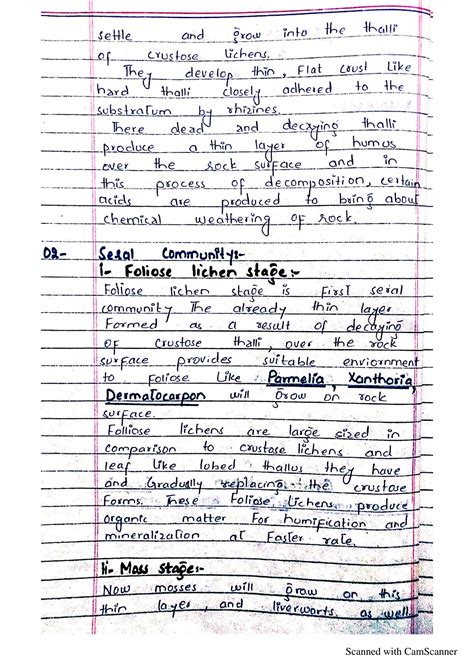 settle and grow into the thalli
of crustose lichens.
They develop thin, Flat coust Like
hard thalli closely adhered to the
substratum by rhizines.
There dead and decaying thalli
produce a thin layer of humus
over the rock surface and in
this process of decomposition, certain
acids are produced to bring about
chemical weathering of rock.
02- Seral Community:-
i- Foliose lichen stage:-
Foliose lichen stage is First seral
community The already thin layer
Formed as a result of decaying
of crustose thalli, over the rock
surface provides suitable enviornment
to Foliose Like Parmelia, Xanthoria,
Dermatocarpon will grow on rock
surface.
Folliose lichens are large sized in
comparison to crustose lichens and
leaf like lobed thallus they have
and Gradually replacing the crustose
Forms. These Foliose Lichens produce
organic matter For humification and
mineralization at Faster rate.
ii- Moss stage:-
Now mosses will grow on this
thin layer, and liverworts as well
Scanned with CamScanner